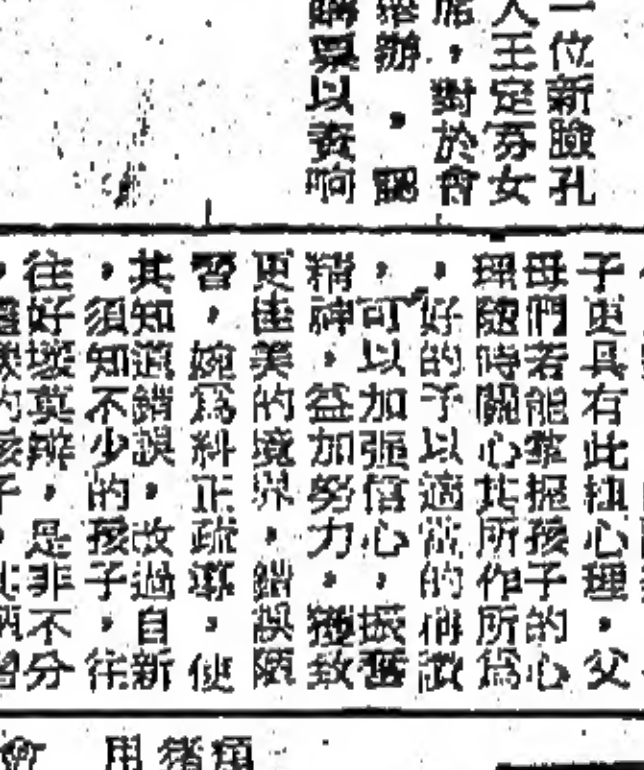 一位新臉孔
人王定芬女
席,對於會
舉辦,認
購票以資响
子更具有此種心理,父
母們若能掌握孩子的心
理隨時關心其所作所爲
,好的予以適當的稱讚
,可以加强信心,振奮
精神,益加努力,獲致
更佳美的境界,錯誤陋
習,婉爲糾正疏導,使
其知道錯誤,改過自新
,須知不少的孩子,往
往好壞莫辦,是非不分